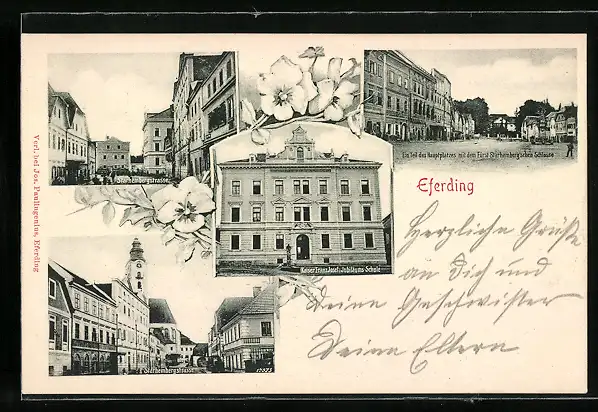 Verl. bei Jos. Paulingenius, Eferding
Starhembergstrasse.
Ein Teil des Hauptplatzes mit dem Fürst Starhembergschen Schlosse
Eferding
Kaiser Franz Josef-Jubiläums-Schule
Starhembergstrasse
12073
Herzliche Grüße
an Dich und
Deine Geschwister
Deine Eltern